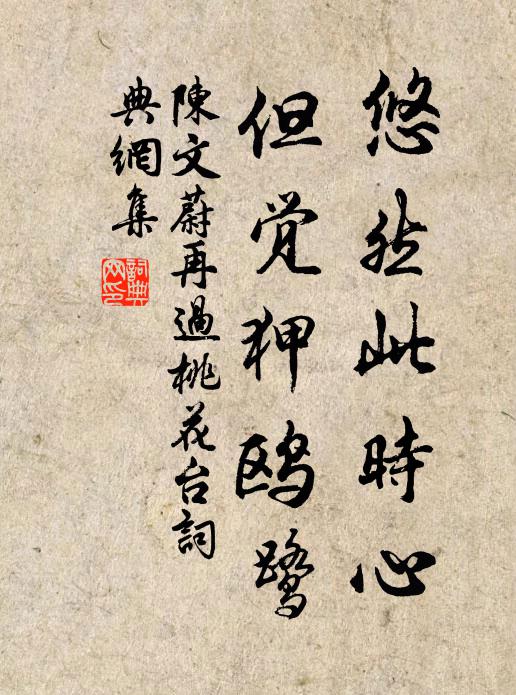 悠然此時心
但觉狎鸥鹭
陳文蔚再過桃花台詞
典網集
詞典网印